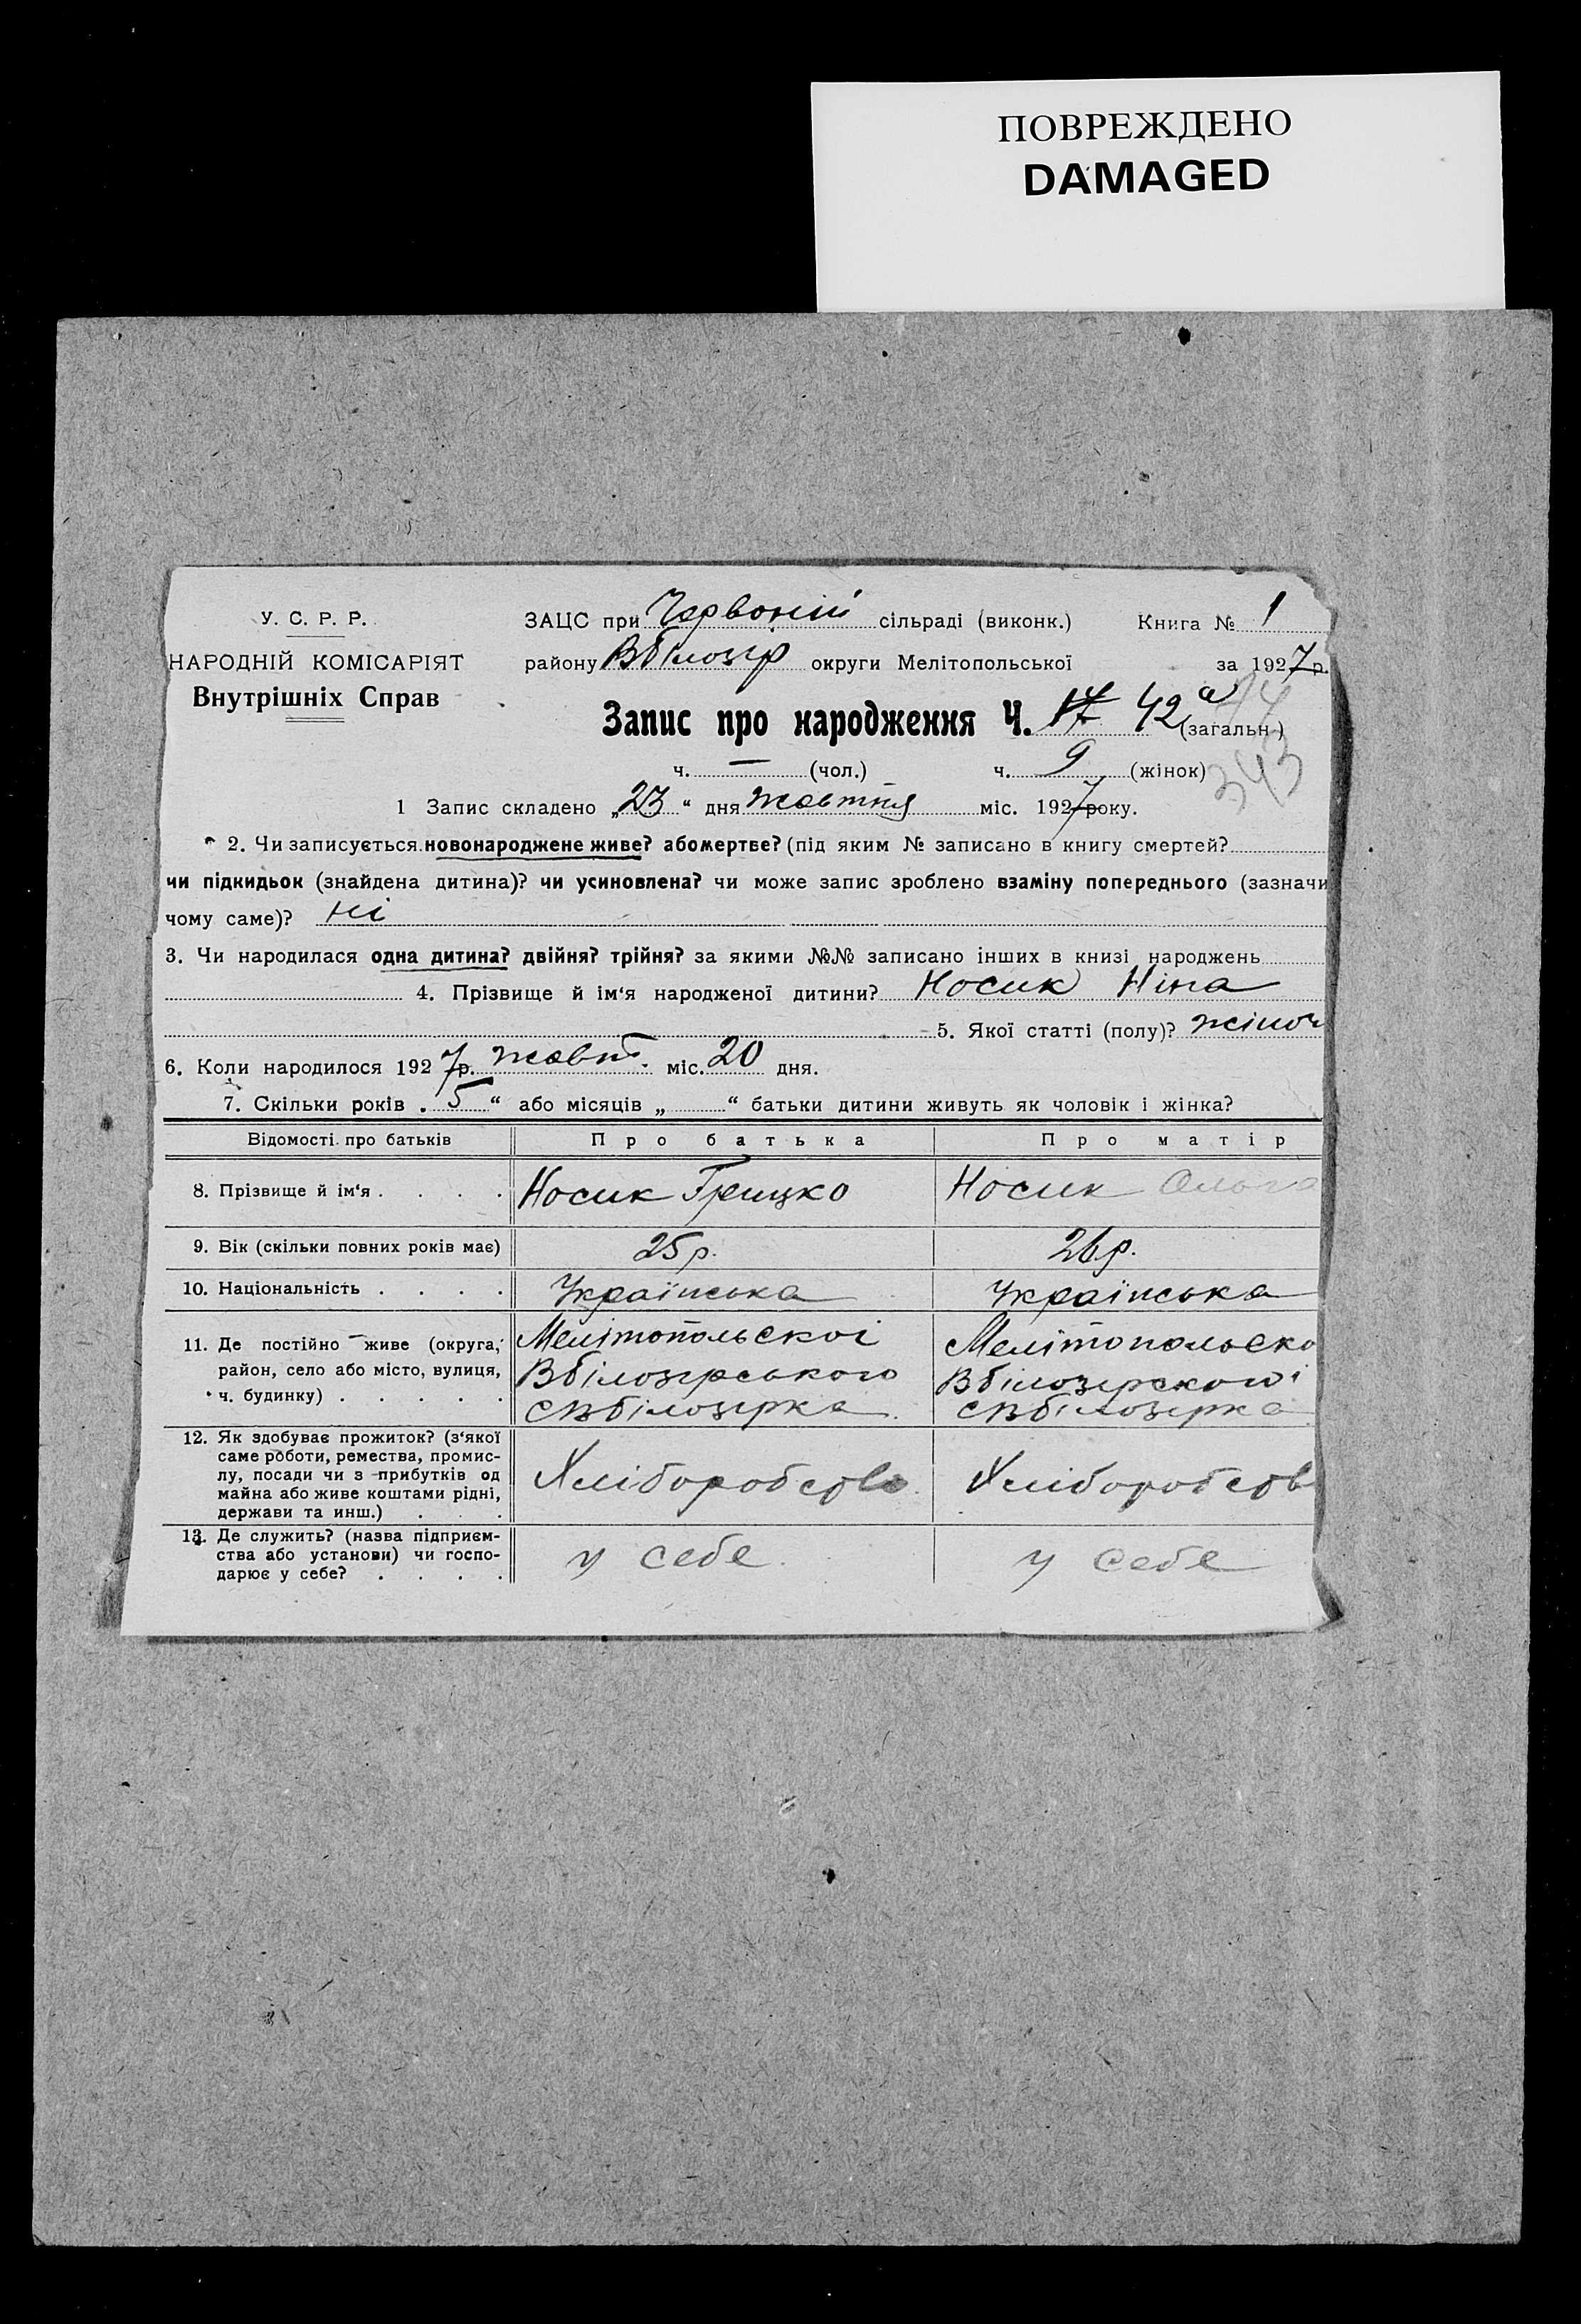 ПОВРЕЖДЕНО
DAMAGED
У. С. Р. Р.
НАРОДНІЙ КОМІСАРІЯТ
Внутрішніх Справ
ЗАЦС при Червоній сільраді (виконк.) Книга № 1
району Вбілозір округи Мелітопольської за 1927 р.
Запис про народження Ч. 17 42а (загальн.)
343
ч. — (чол.) ч. 9 (жінок)
1 Запис складено „23“ дня жовтня міс. 1927 року.
2. Чи записується новонароджене живе? або мертве? (під яким № записано в книгу смертей?
чи підкидьок (знайдена дитина)? чи усиновлена? чи може запис зроблено взаміну попереднього (зазначи
чому саме)? ні
3. Чи народилася одна дитина? двійня? трійня? за якими №№ записано інших в книзі народжень
4. Прізвище й ім‘я народженої дитини? Носик Ніна
5. Якої статті (полу)? жіноч
6. Коли народилося 1927 р. жовт. міс. 20 дня.
7. Скільки років „5“ або місяців „ “ батьки дитини живуть як чоловік і жінка?
Відомості про батьків Про батька Про матір
8. Прізвище й ім‘я . . . . Носик Грицко Носик Ольга
9. Вік (скільки повних років має) 25 р. 26 р.
10. Національність . . . . Українська Українська
11. Де постійно живе (округа, Мелітопольскоі Мелітопольско
район, село або місто, вулиця, Вбілозірського Вбілозірского
ч. будинку) . . . . . СВбілозірка СВбілозірка
12. Як здобуває прожиток? (з‘якої
саме роботи, ремества, промис-
лу, посади чи з прибутків од
майна або живе коштами рідні, Хліборобство Хліборобств
держави та инш.) . . .
13. Де служить? (назва підприєм-
ства або установи) чи госпо- у себе у себе
дарює у себе? . . . .